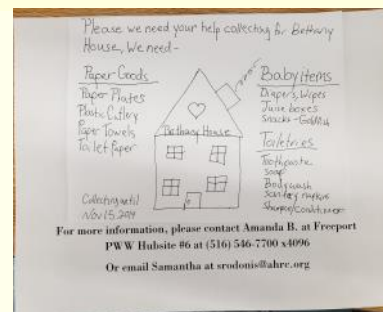 Please we need your help collecting for Bethany
House, We need-
Paper Goods
Paper Plates
Plastic Cutlery
Paper Towels
Toilet paper
Collecting until
Nov 15, 2019
Bethany House
Baby items
Diapers, Wipes
Juice boxes
Snacks - Goldfish
Toiletries
Toothpaste
soap
Bodywash
Sanitary napkins
Shampoo/Conditioner
For more information, please contact Amanda B. at Freeport
PWW Hubsite #6 at (516) 546-7700 x4096
Or email Samantha at srodonis@ahrc.org